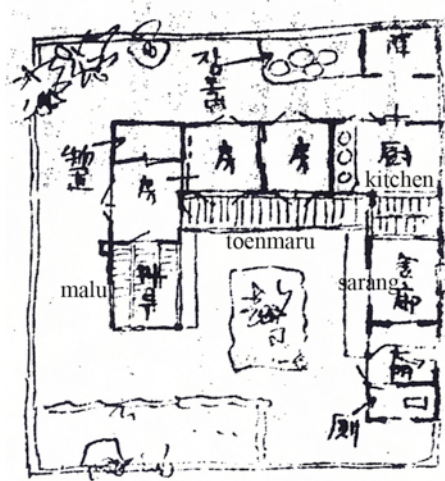 장독대
庫
房
房
厨
kitchen
房
toenmaru
malu
마루
sarang
舍廊
厠